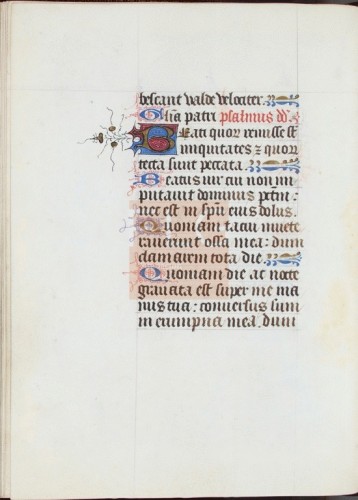 bescant valde velociter.
Glia patri psalmus dd
Beati quor remisse st
iniquitates z quor
tecta sunt peccata.
Beatus vir cui non im
putavit dominus petm:
nec est in spu eius dolus.
Quoniam tacui invete
raverunt ossa mea: dum
clamarem tota die.
Quoniam die ac nocte
gravata est super me ma
nus tua: conversus sum
in erumpna mea. dum